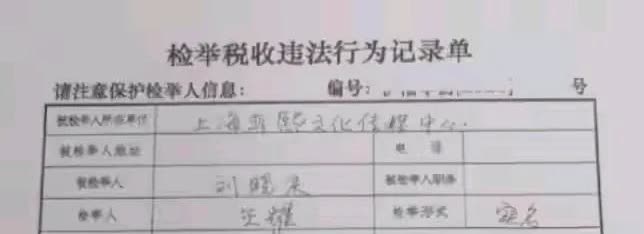 检举税收违法行为记录单
请注意保护检举人信息: 编号: 号
被检举人所在单位 上海菲熙文化传媒中心
被检举人地址 电话
被检举人 刘晓 被检举人职务
检举人 汪耀 检举形式 实名